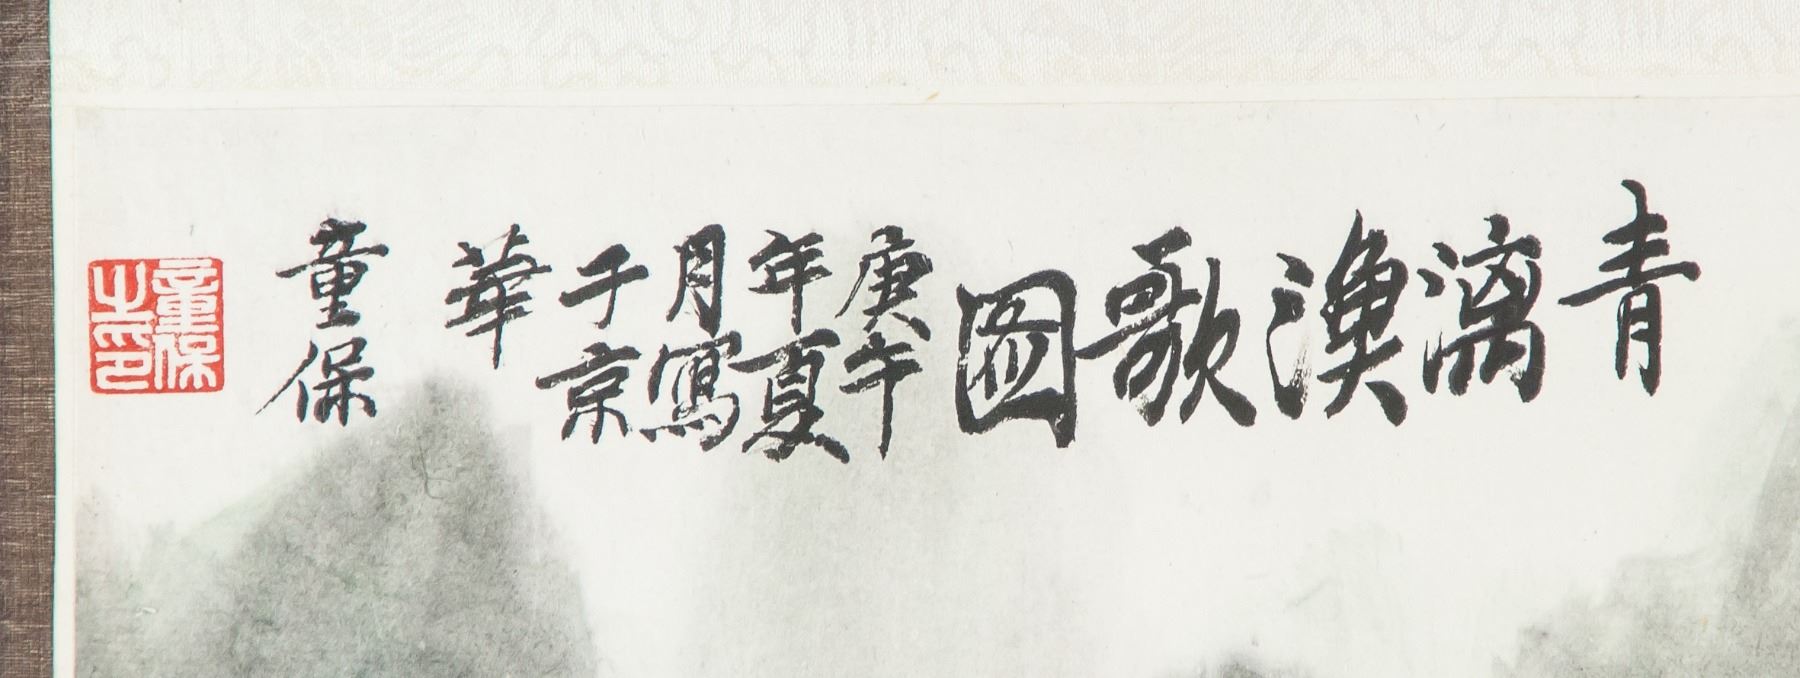 青漓漁歌圖
庚午
年夏
月寫
于京
華
童保
童保
之印